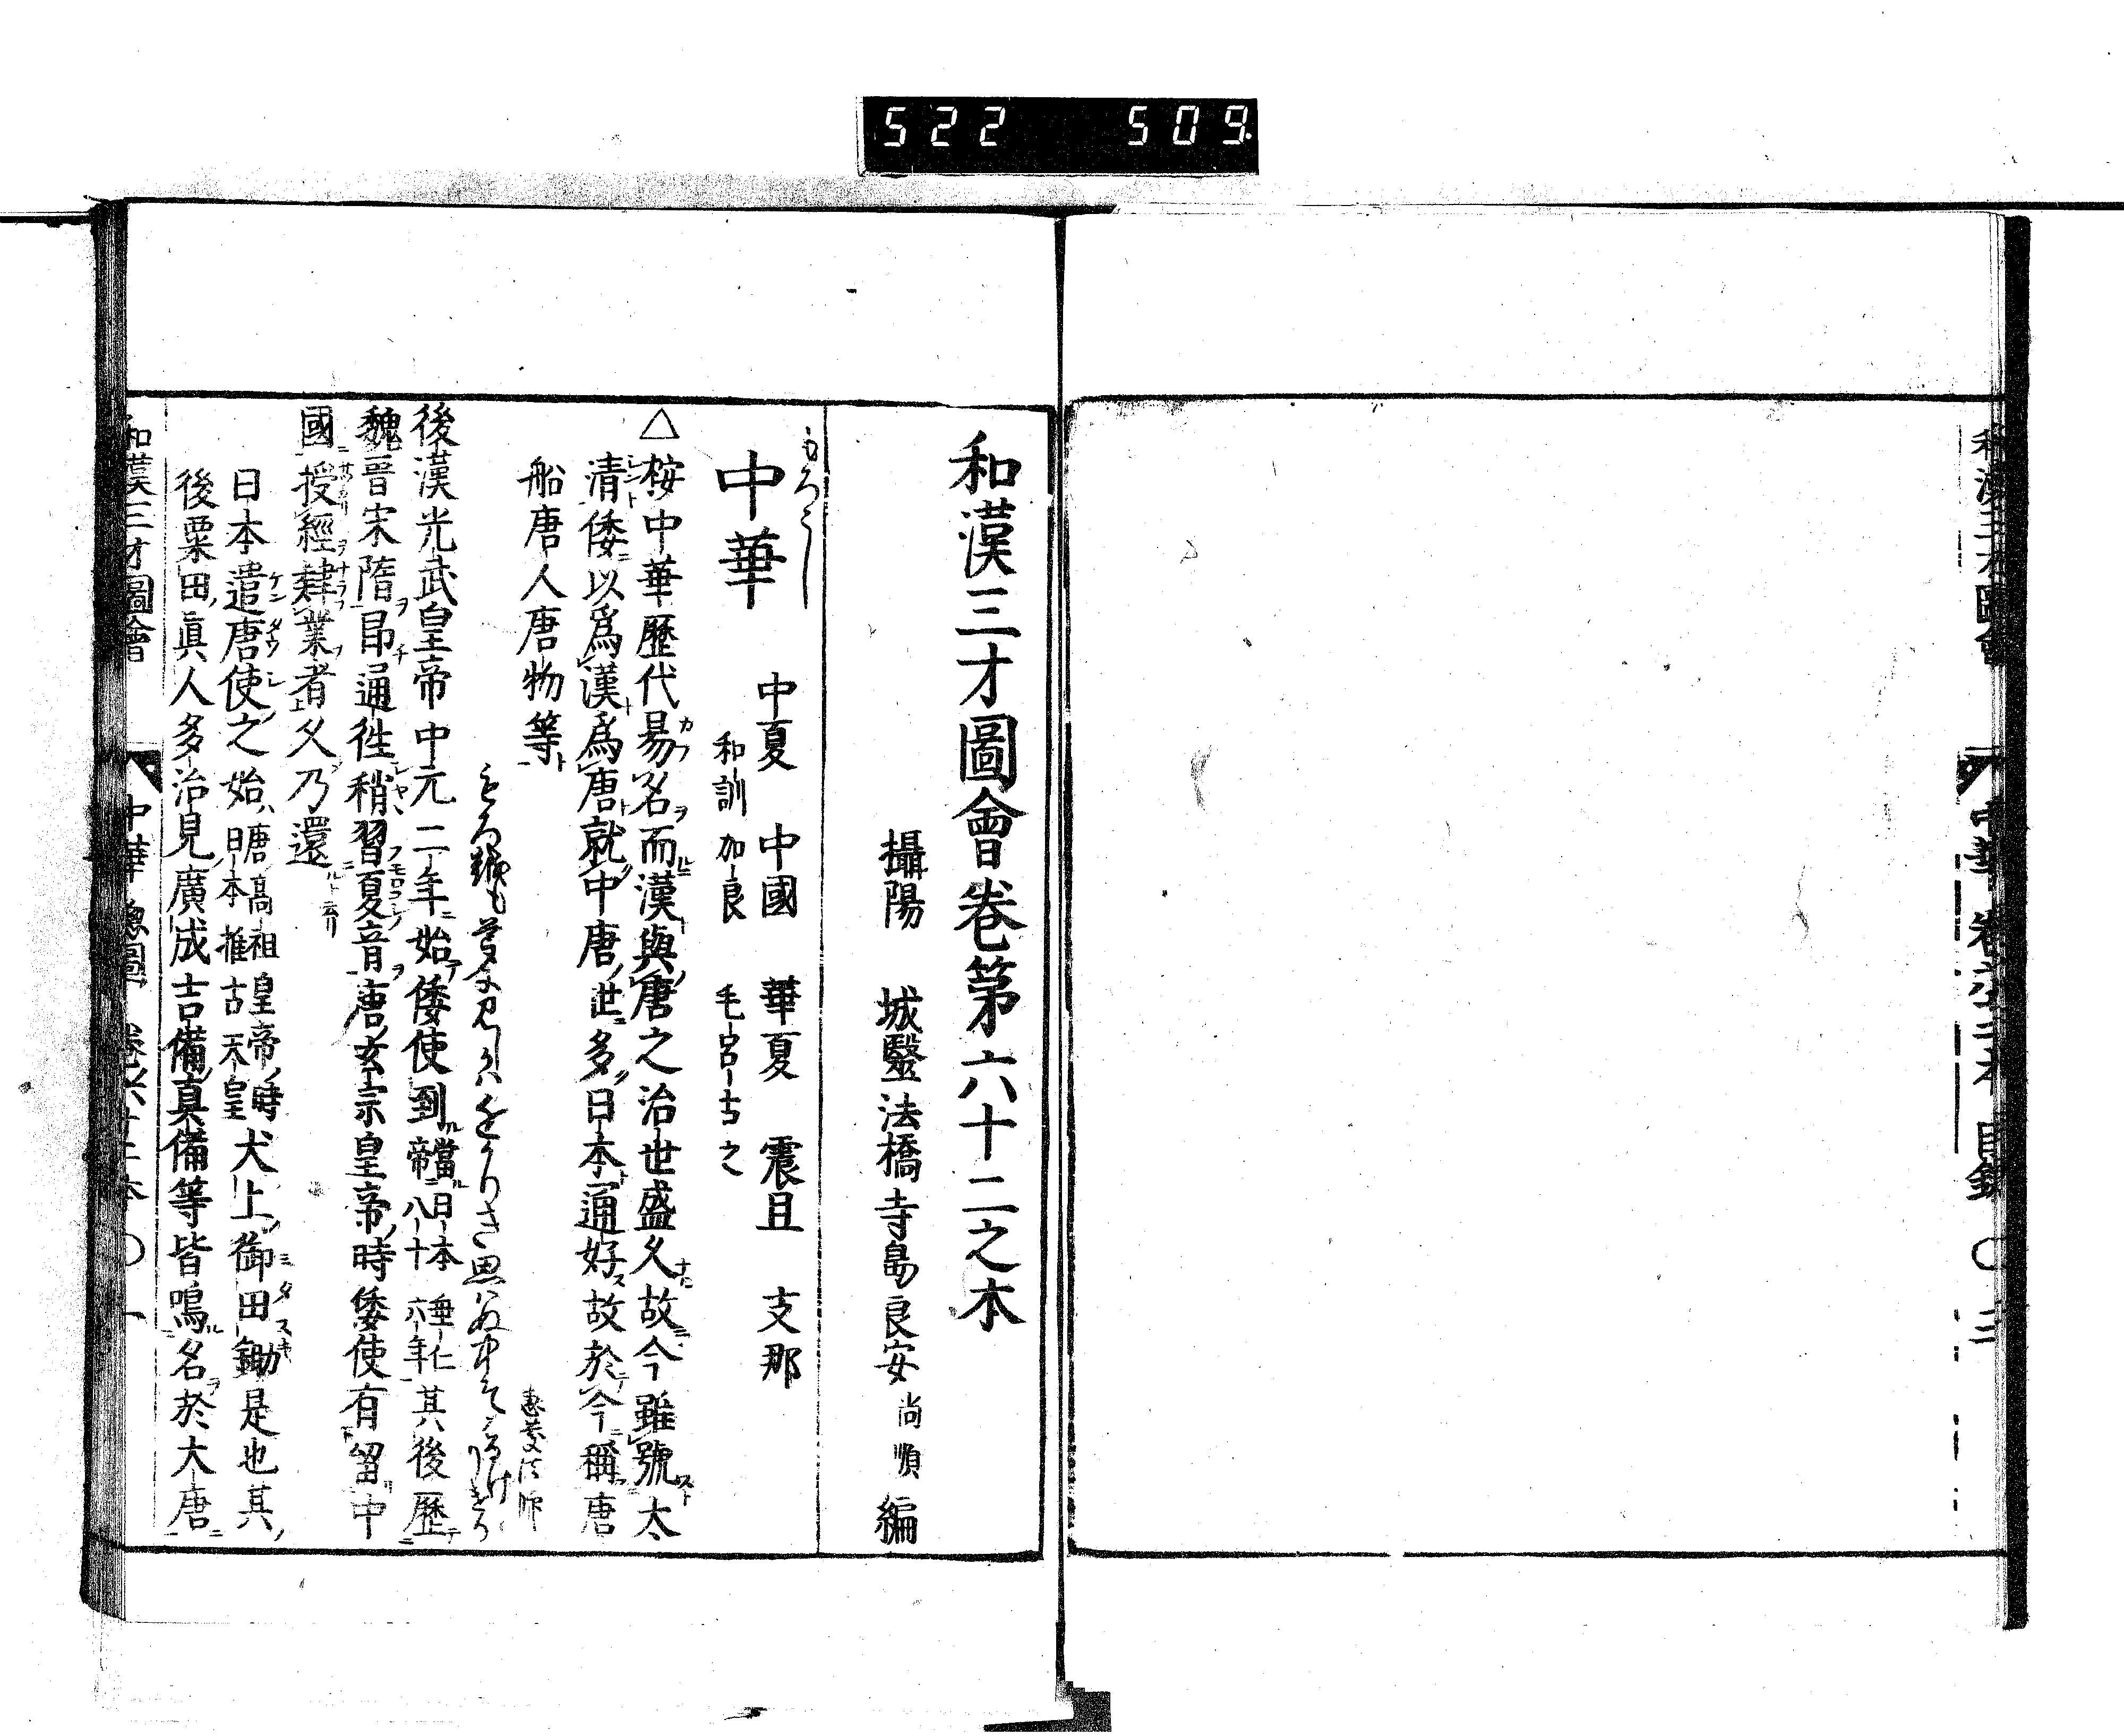 522 509
和漢三才圖會
中華 卷六十二本 目錄 〇 三
和漢三才圖會卷第六十二之本
攝陽 城醫法橋寺島良安尚順編
もろこし
中華
中夏 中國 華夏 震旦 支那
和訓 加良 毛呂古之
△桉中華歷代易名而漢與唐之治世盛久故今雖號太
清倭以爲漢爲唐就中唐世多日本通好故於今稱唐
船唐人唐物等
惠慶法師
後漢光武皇帝中元二年始倭使到當日本垂仁帝八十六年其後歷
魏晉宋隋昂通徃稍習夏音唐玄宗皇帝時倭使有留中
國授經肄業者久乃還
日本遣唐使之始唐高祖皇帝時日本推古天皇犬上御田鋤是也其
後粟田眞人多治見廣成吉備真備等皆鳴名於大唐
和漢三才圖會 中華 卷六十二本 〇 一